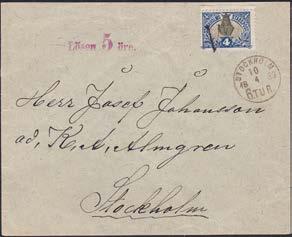 Lösen 5 öre.
4
STOCKHOLM
10
4
6.TUR
Herr Josef Johansson
ad, K, A, Almgren
Stockholm